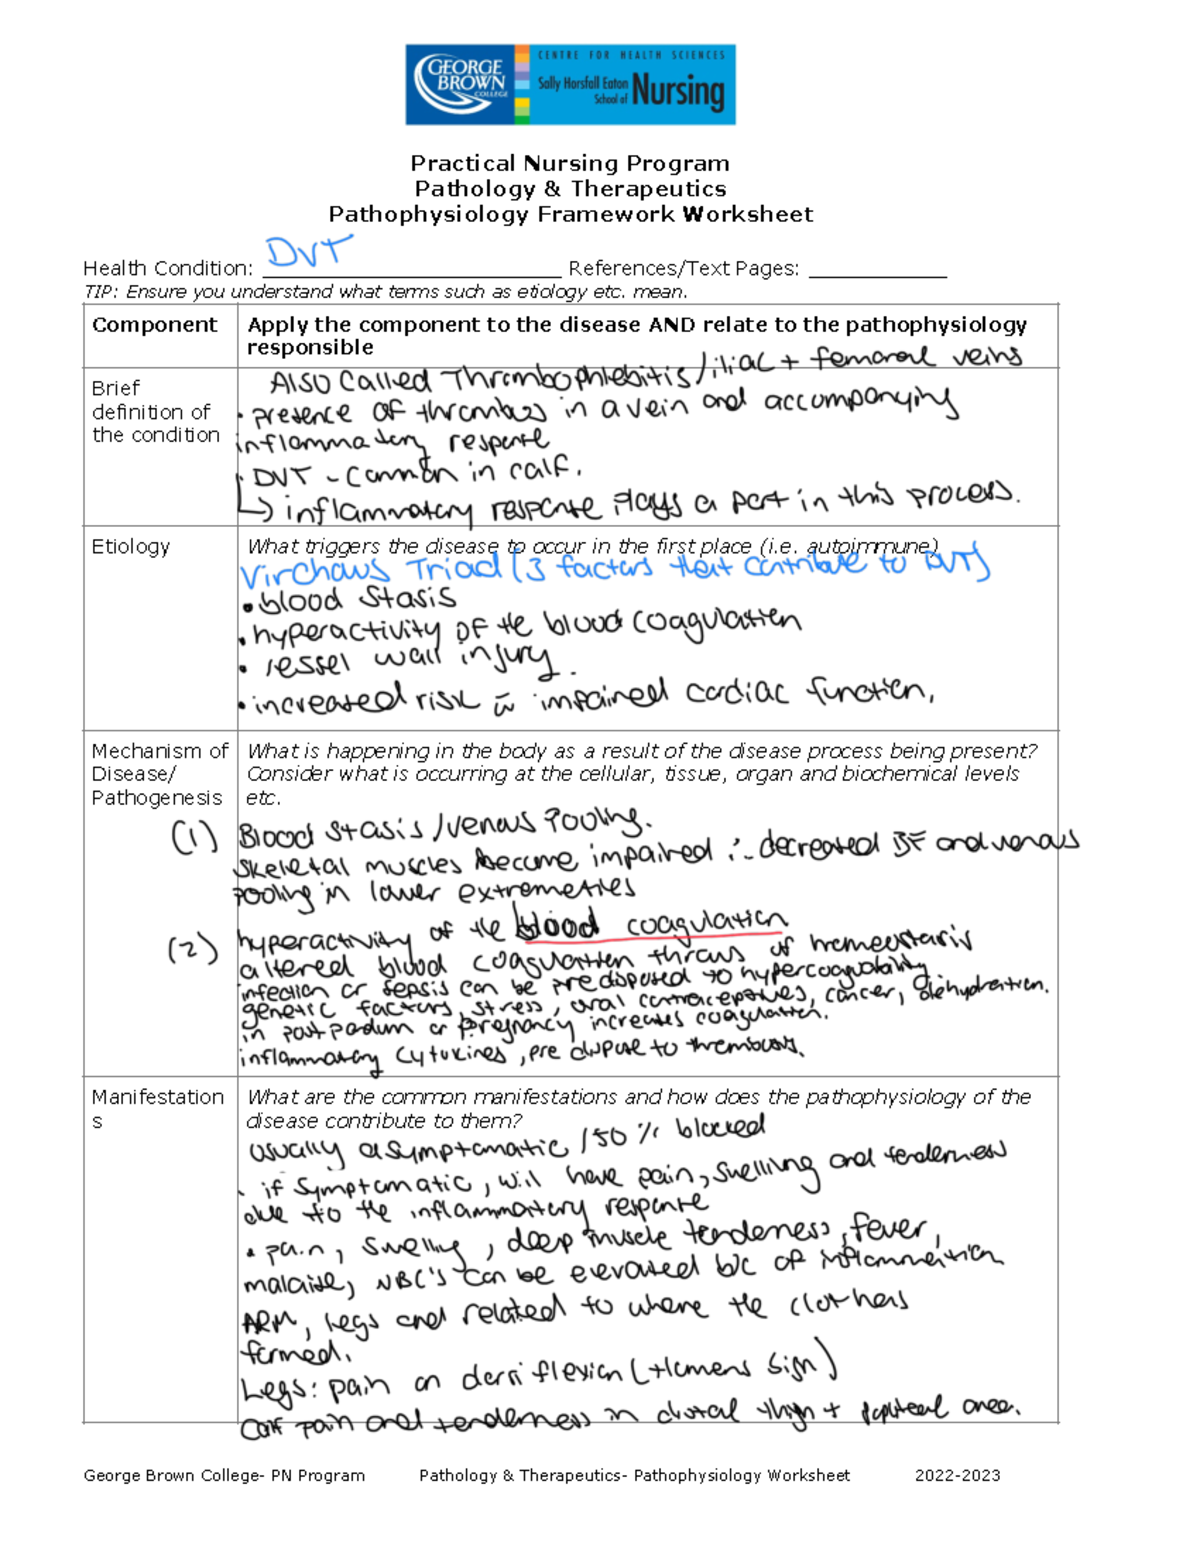 GEORGE BROWN COLLEGE
CENTRE FOR HEALTH SCIENCES
Sally Horsfall Eaton
School of Nursing
Practical Nursing Program
Pathology & Therapeutics
Pathophysiology Framework Worksheet
Health Condition: DVT References/Text Pages:
TIP: Ensure you understand what terms such as etiology etc. mean.
Component
Apply the component to the disease AND relate to the pathophysiology
responsible
Brief
definition of
the condition
Also called Thrombophlebitis/iliac + femoral veins
• presence of thrombus in a vein and accompanying
inflammatory response
• DVT - common in calf.
↳ inflammatory response plays a part in this process.
Etiology
What triggers the disease to occur in the first place (i.e. autoimmune)
Virchows Triad (3 factors that contribute to DVT)
• blood stasis
• hyperactivity of the blood coagulation
• vessel wall injury.
• increased risk c̄ impaired cardiac function.
Mechanism of
Disease/
Pathogenesis
What is happening in the body as a result of the disease process being present?
Consider what is occurring at the cellular, tissue, organ and biochemical levels
etc.
(1) Blood stasis/venous Pooling.
skeletal muscles become impaired ∴ decreased BF and venous
pooling in lower extremeties
(2) hyperactivity of the blood coagulation
altered blood coagulation throws of homeostasis
infection or sepsis can be predisposed to hypercoagulability
genetic factors, stress, oral contraceptives, cancer, dehydration.
in postpartum or pregnancy increases coagulation.
inflammatory cytokines, pre dispose to thrombosis.
Manifestation
s
What are the common manifestations and how does the pathophysiology of the
disease contribute to them?
usually asymptomatic /50% blocked
• if symptomatic, will have pain, swelling and tenderness
due to the inflammatory response
• pain, swelling, deep muscle tenderness, fever,
malaise, WBC's can be elevated b/c of inflammation
ARM, legs and related to where the clot has
formed.
Legs: pain on dorsiflexion (Homens sign)
Calf pain and tenderness in distal thigh + popliteal area.
George Brown College- PN Program Pathology & Therapeutics- Pathophysiology Worksheet 2022-2023